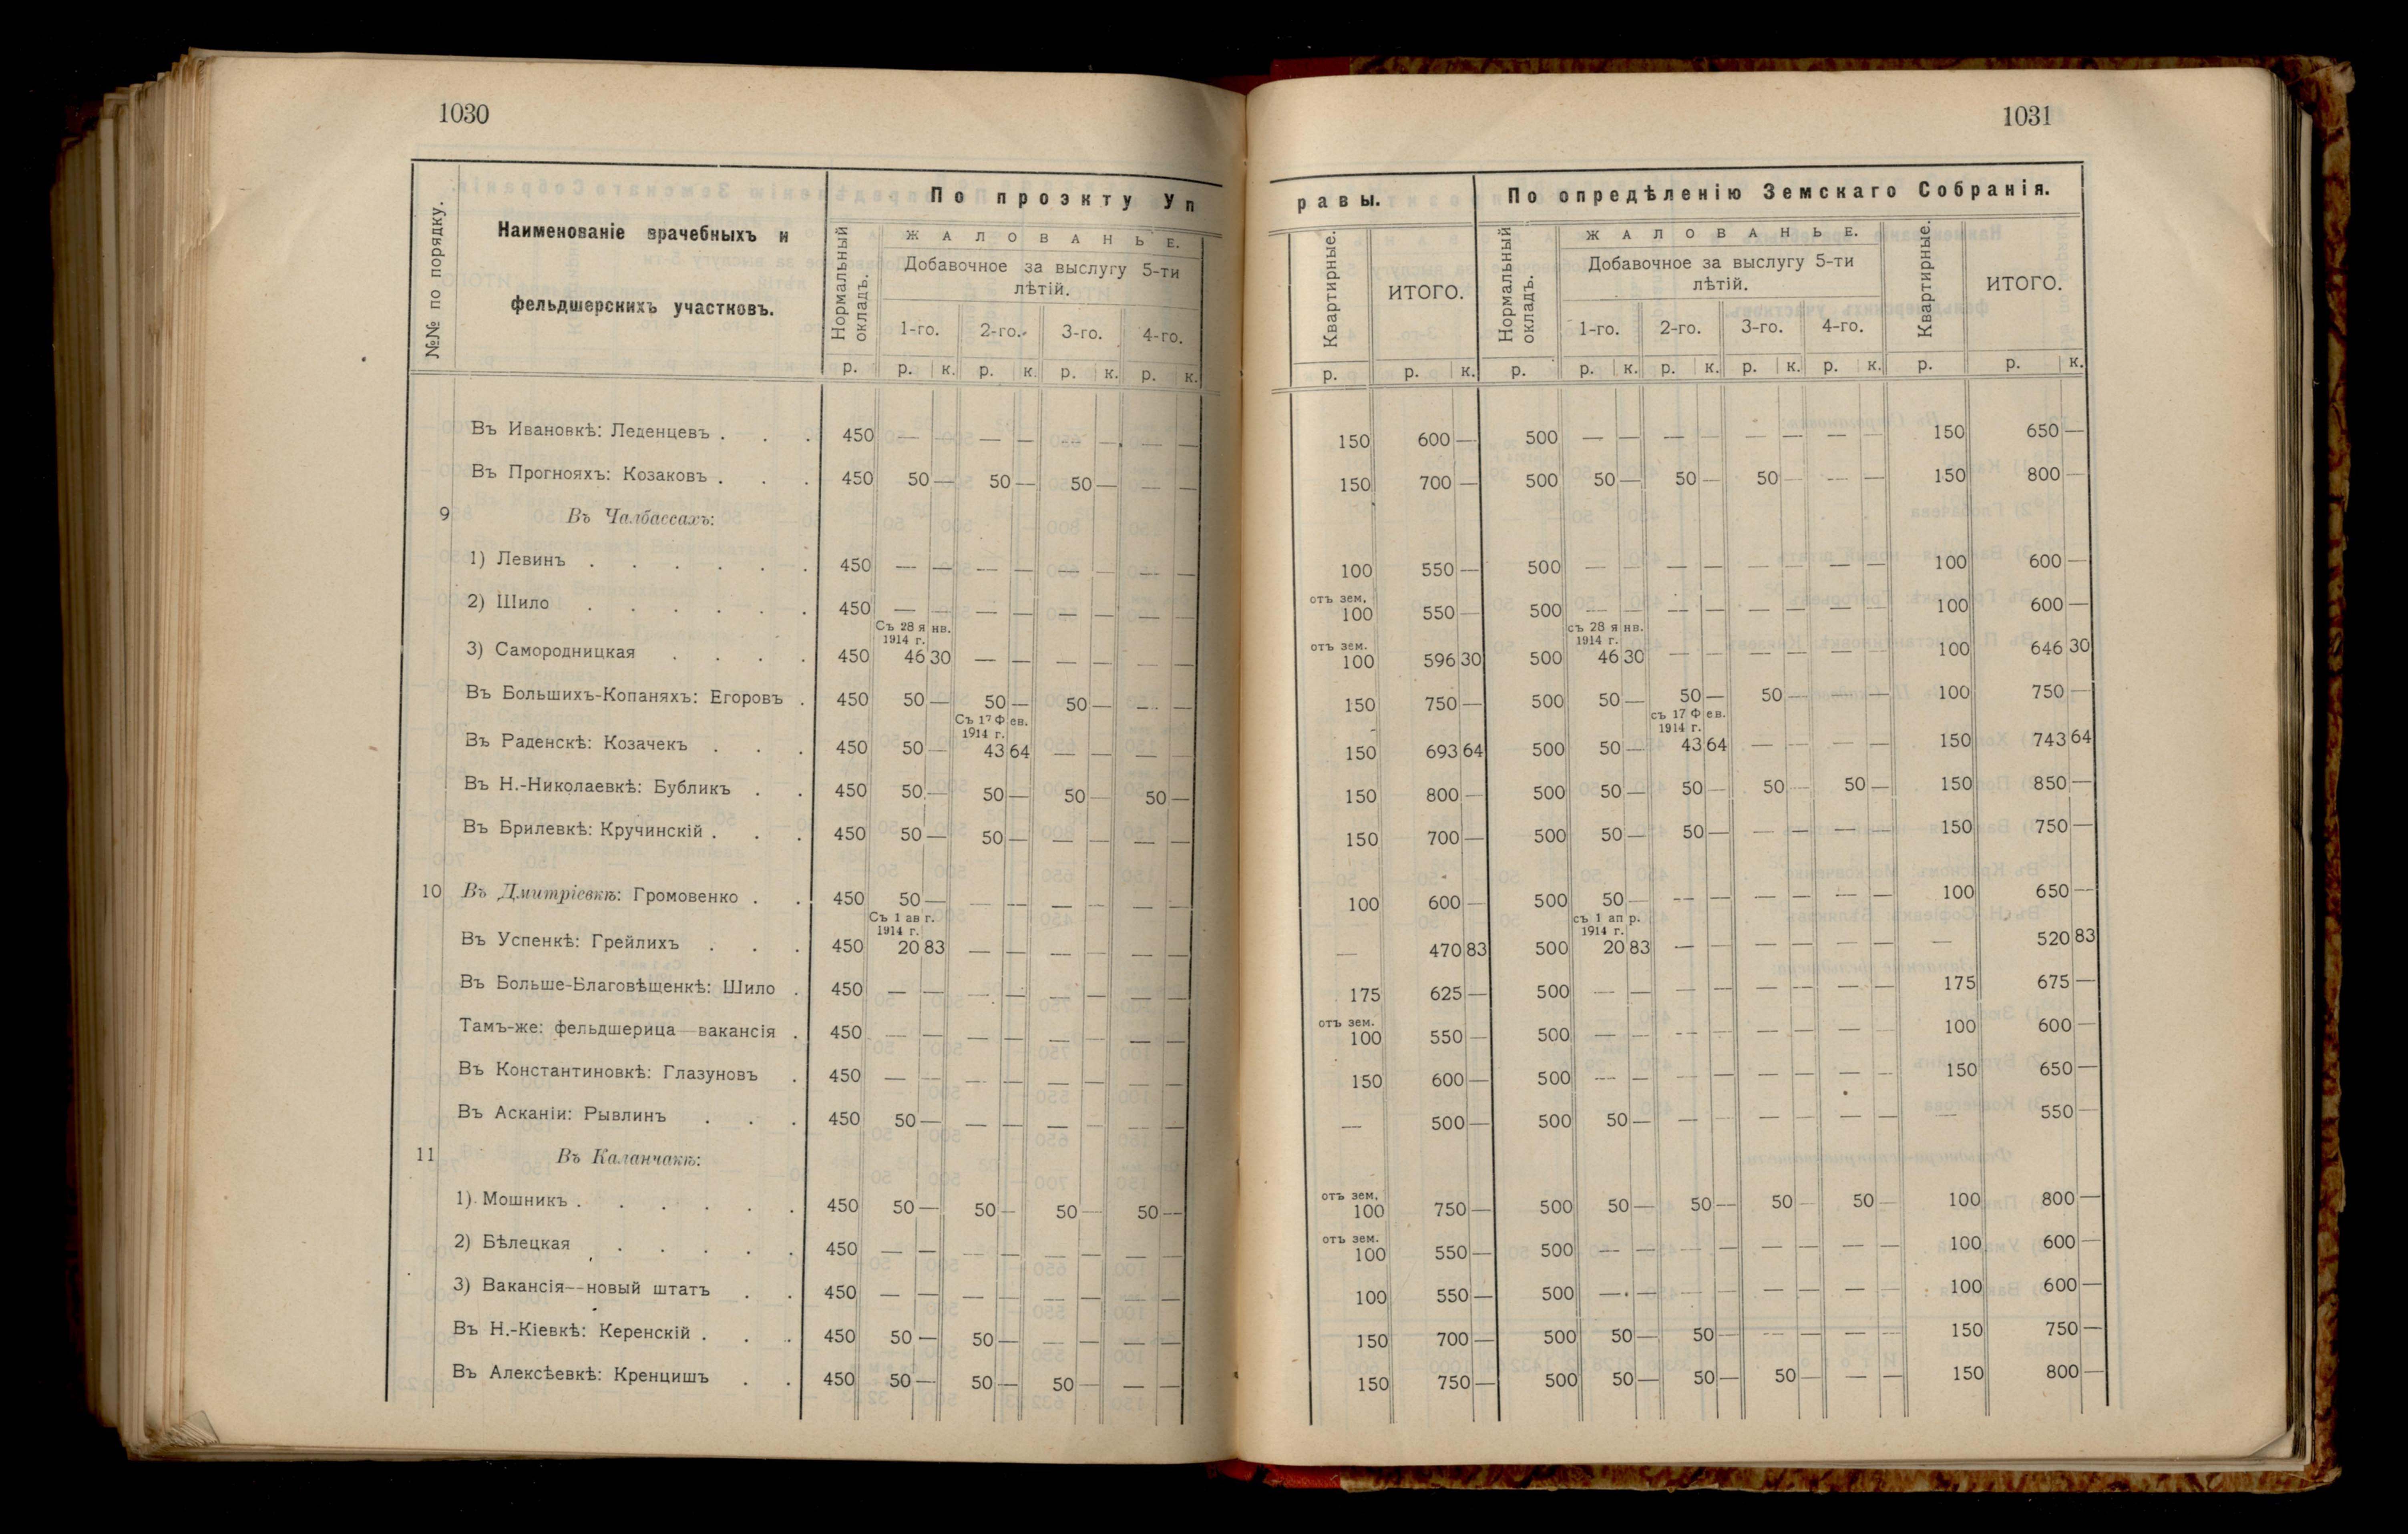 1030
1031
№№ по порядку.
Наименованіе врачебныхъ и
фельдшерскихъ участковъ.
По проэкту Уп
равы.
По опредѣленію Земскаго Собранія.
Нормальный окладъ.
ЖАЛОВАНЬЕ.
Добавочное за выслугу 5-ти
лѣтій.
1-го. 2-го. 3-го. 4-го.
Квартирные.
ИТОГО.
Нормальный окладъ.
ЖАЛОВАНЬЕ.
Добавочное за выслугу 5-ти
лѣтій.
1-го. 2-го. 3-го. 4-го.
Квартирные.
ИТОГО.
р. р. к. р. к. р. к. р. к. р. р. к. р. р. к. р. к. р. к. р. к. р. р. к.
Въ Ивановкѣ: Леденцевъ . . . 450 — — — — — — — — 150 600 — 500 — — — — — — — — 150 650 —
Въ Прогнояхъ: Козаковъ . . . 450 50 — 50 — 50 — — — 150 700 — 500 50 — 50 — 50 — — — 150 800 —
9 Въ Чалбассахъ:
1) Левинъ . . . . . . 450 — — — — — — — — 100 550 — 500 — — — — — — — — 100 600 —
отъ зем.
2) Шило . . . . . . 450 — — — — — — — — 100 550 — 500 — — — — — — — — 100 600 —
Съ 28 янв. 1914 г. отъ зем. съ 28 янв. 1914 г.
3) Самородницкая . . . . 450 46 30 — — — — — — 100 596 30 500 46 30 — — — — — — 100 646 30
Въ Большихъ-Копаняхъ: Егоровъ . 450 50 — 50 — 50 — — — 150 750 — 500 50 — 50 — 50 — — — 100 750 —
Съ 17 Фев. 1914 г. съ 17 Фев. 1914 г.
Въ Раденскѣ: Козачекъ . . . 450 50 — 43 64 — — — — 150 693 64 500 50 — 43 64 — — — — 150 743 64
Въ Н.-Николаевкѣ: Бубликъ . . 450 50 — 50 — 50 — 50 — 150 800 — 500 50 — 50 — 50 — 50 — 150 850 —
Въ Брилевкѣ: Кручинскій . . . 450 50 — 50 — — — — — 150 700 — 500 50 — 50 — — — — — 150 750 —
10 Въ Дмитріевкѣ: Громовенко . . 450 50 — — — — — — — 100 600 — 500 50 — — — — — — — 100 650 —
Съ 1 авг. 1914 г. съ 1 апр. 1914 г.
Въ Успенкѣ: Грейлихъ . . . 450 20 83 — — — — — — — 470 83 500 20 83 — — — — — — — 520 83
Въ Больше-Благовѣщенкѣ: Шило . 450 — — — — — — — — 175 625 — 500 — — — — — — — — 175 675 —
отъ зем.
Тамъ-же: фельдшерица—вакансія . 450 — — — — — — — — 100 550 — 500 — — — — — — — — 100 600 —
Въ Константиновкѣ: Глазуновъ . 450 — — — — — — — — 150 600 — 500 — — — — — — — — 150 650 —
Въ Асканіи: Рывлинъ . . . 450 50 — — — — — — — — 500 — 500 50 — — — — — — — — 550 —
11 Въ Каланчакѣ:
отъ зем.
1) Мошникъ . . . . . . 450 50 — 50 — 50 — 50 — 100 750 — 500 50 — 50 — 50 — 50 — 100 800 —
отъ зем.
2) Бѣлецкая . . . . . 450 — — — — — — — — 100 550 — 500 — — — — — — — — 100 600 —
3) Вакансія—новый штатъ . . 450 — — — — — — — — 100 550 — 500 — — — — — — — — 100 600 —
Въ Н.-Кіевкѣ: Керенскій . . . 450 50 — 50 — — — — — 150 700 — 500 50 — 50 — — — — — 150 750 —
Въ Алексѣевкѣ: Кренцишъ . . 450 50 — 50 — 50 — — — 150 750 — 500 50 — 50 — 50 — — — 150 800 —